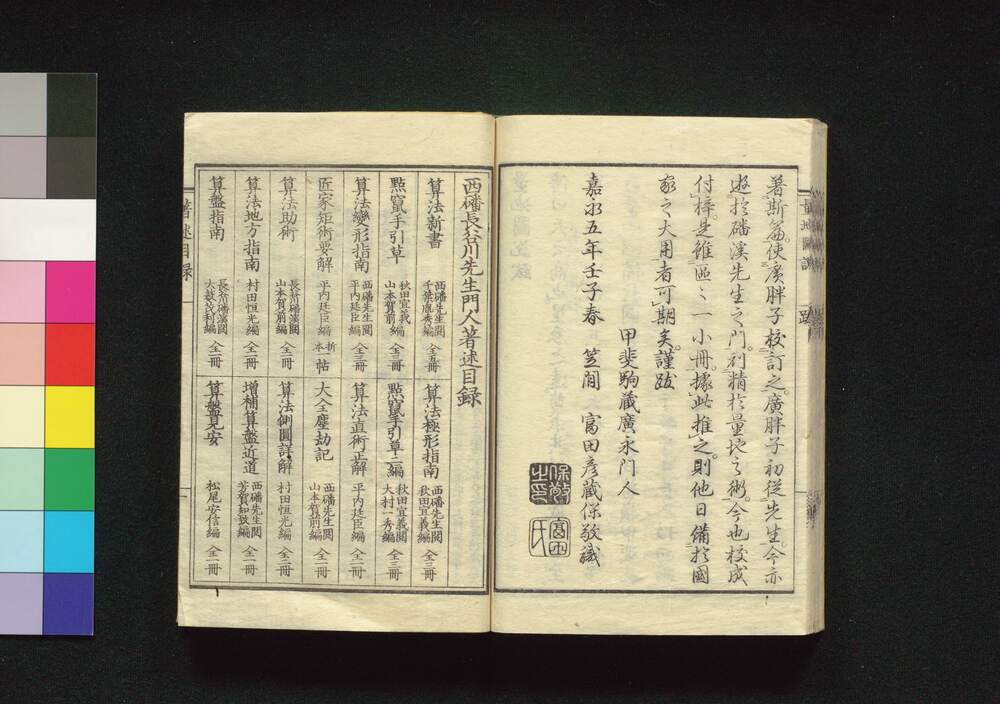 著斯篇使廣胖子校訂之廣胖子初從先生今亦
遊於磻溪先生之門刻精於量地之術今也校成
付梓是雖區々一小冊據此推之則他日備於國
家之大用者可期矣謹跋
甲斐駒藏廣永門人
嘉永五年壬子春
笠間
富田彦藏保敬識
保敬之印
富田氏
西磻長谷川先生門人著述目録
算法新書
西磻先生閲
千葉胤秀編
全五冊
點竄手引草
秋田宜義
山本賀前編
全三冊
算法變形指南
西磻先生閲
平内廷臣編
全三冊
匠家矩術要解
平内廷臣編
折本一帖
算法助術
長谷川磻溪閲
山本賀前編
全一冊
算法地方指南
村田恒光編
全一冊
算盤指南
長谷川磻溪閲
大薮茂利編
全一冊
算法極形指南
西磻先生閲
秋田宜義編
全三冊
點竄手引草二編
秋田宜義閲
大村一秀編
全三冊
算法直術正解
平内廷臣編
全一冊
大全塵劫記
西磻先生閲
山本賀前編
全一冊
算法側圓詳解
村田恒光編
全二冊
増補算盤近道
西磻先生閲
芳賀知致編
全一冊
算盤見安
松尾安信編
全一冊
著述目録